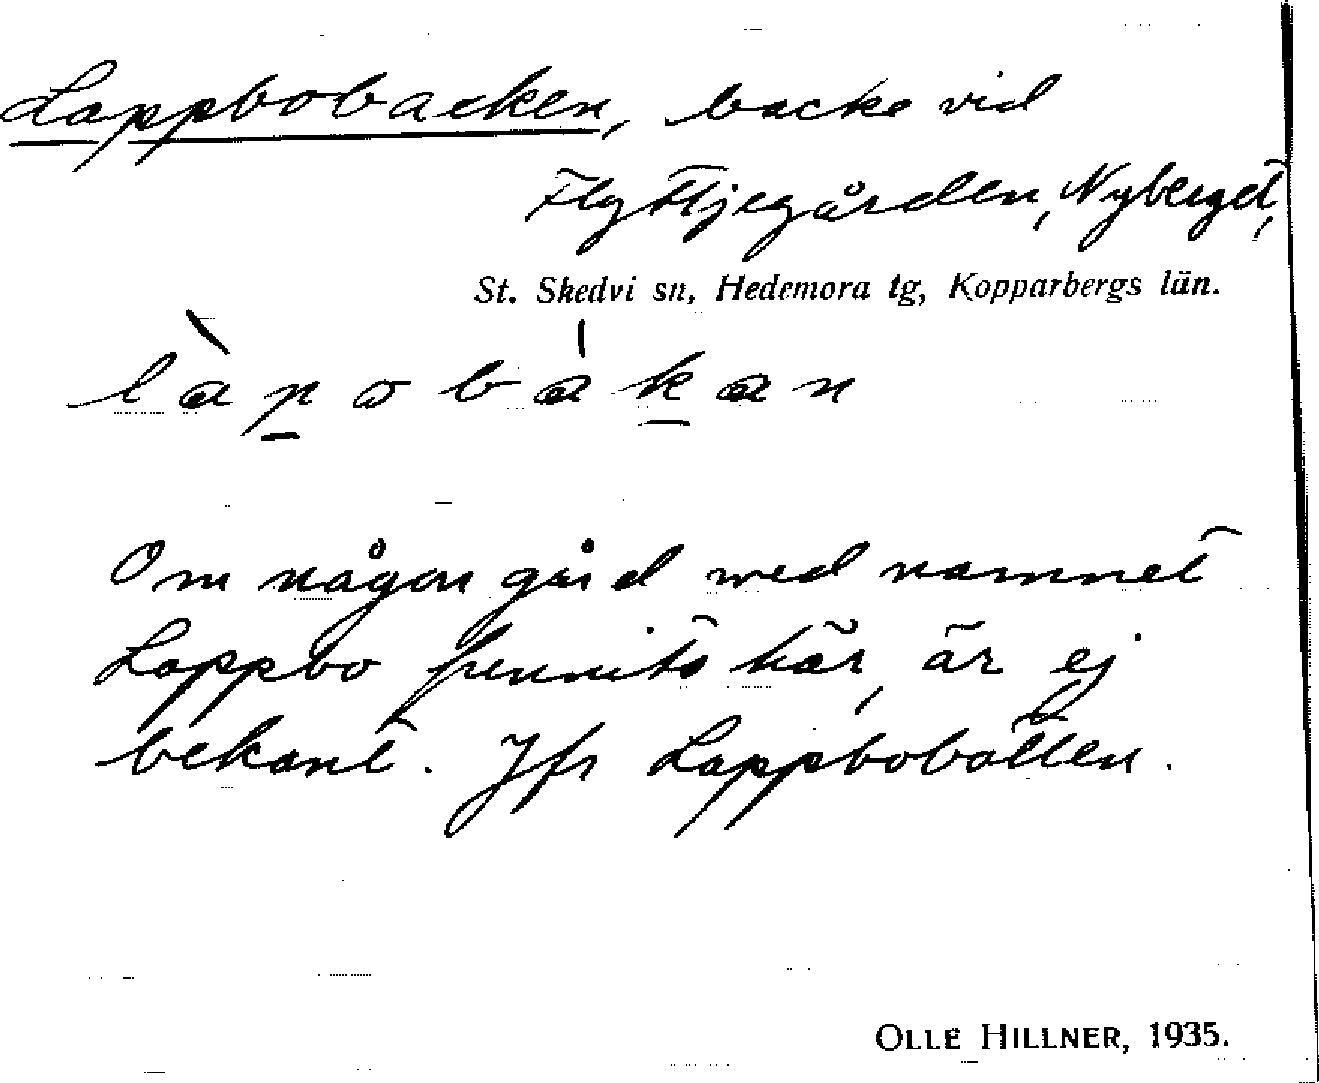 Lappbobacken, backe vid
Flyttjegården, Nyberget,
St. Skedvi sn, Hedemora tg, Kopparbergs län.
làpobákan
Om någon gård med namnet
Lappbo funnits här, är ej
bekant. Jfr Lappbobotten.
OLLE HILLNER, 1935.